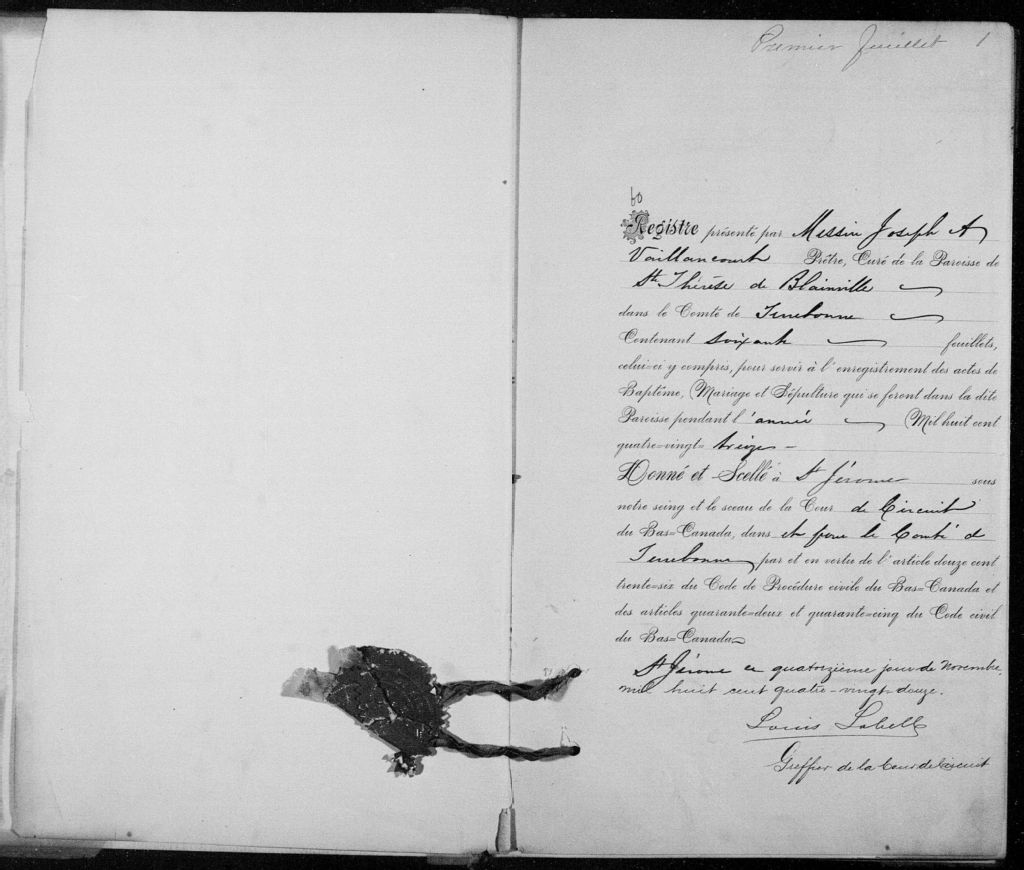 Premier feuillet 1
60
Registre présenté par Messire Joseph A
Vaillancourt Prêtre, Curé de la Paroisse de
Ste Thérèse de Blainville
dans le Comté de Terrebonne
Contenant soixante feuillets,
celui=ci y compris, pour servir à l'enregistrement des actes de
Baptême, Mariage et Sépulture qui se feront dans la dite
Paroisse pendant l'année Mil huit cent
quatre=vingt= treize -
Donné et Scellé à St Jérome sous
notre seing et le sceau de la Cour de Circuit
du Bas=Canada, dans et pour le Comté de
Terrebonne par et en vertu de l'article douze cent
trente=six du Code de Procédure civile du Bas=Canada et
des articles quarante=deux et quarante=cinq du Code civil
du Bas=Canada
St Jérome ce quatorzième jour de Novembre
mil huit cent quatre-vingt-douze.
Louis Labelle
Greffier de la Cour de Circuit